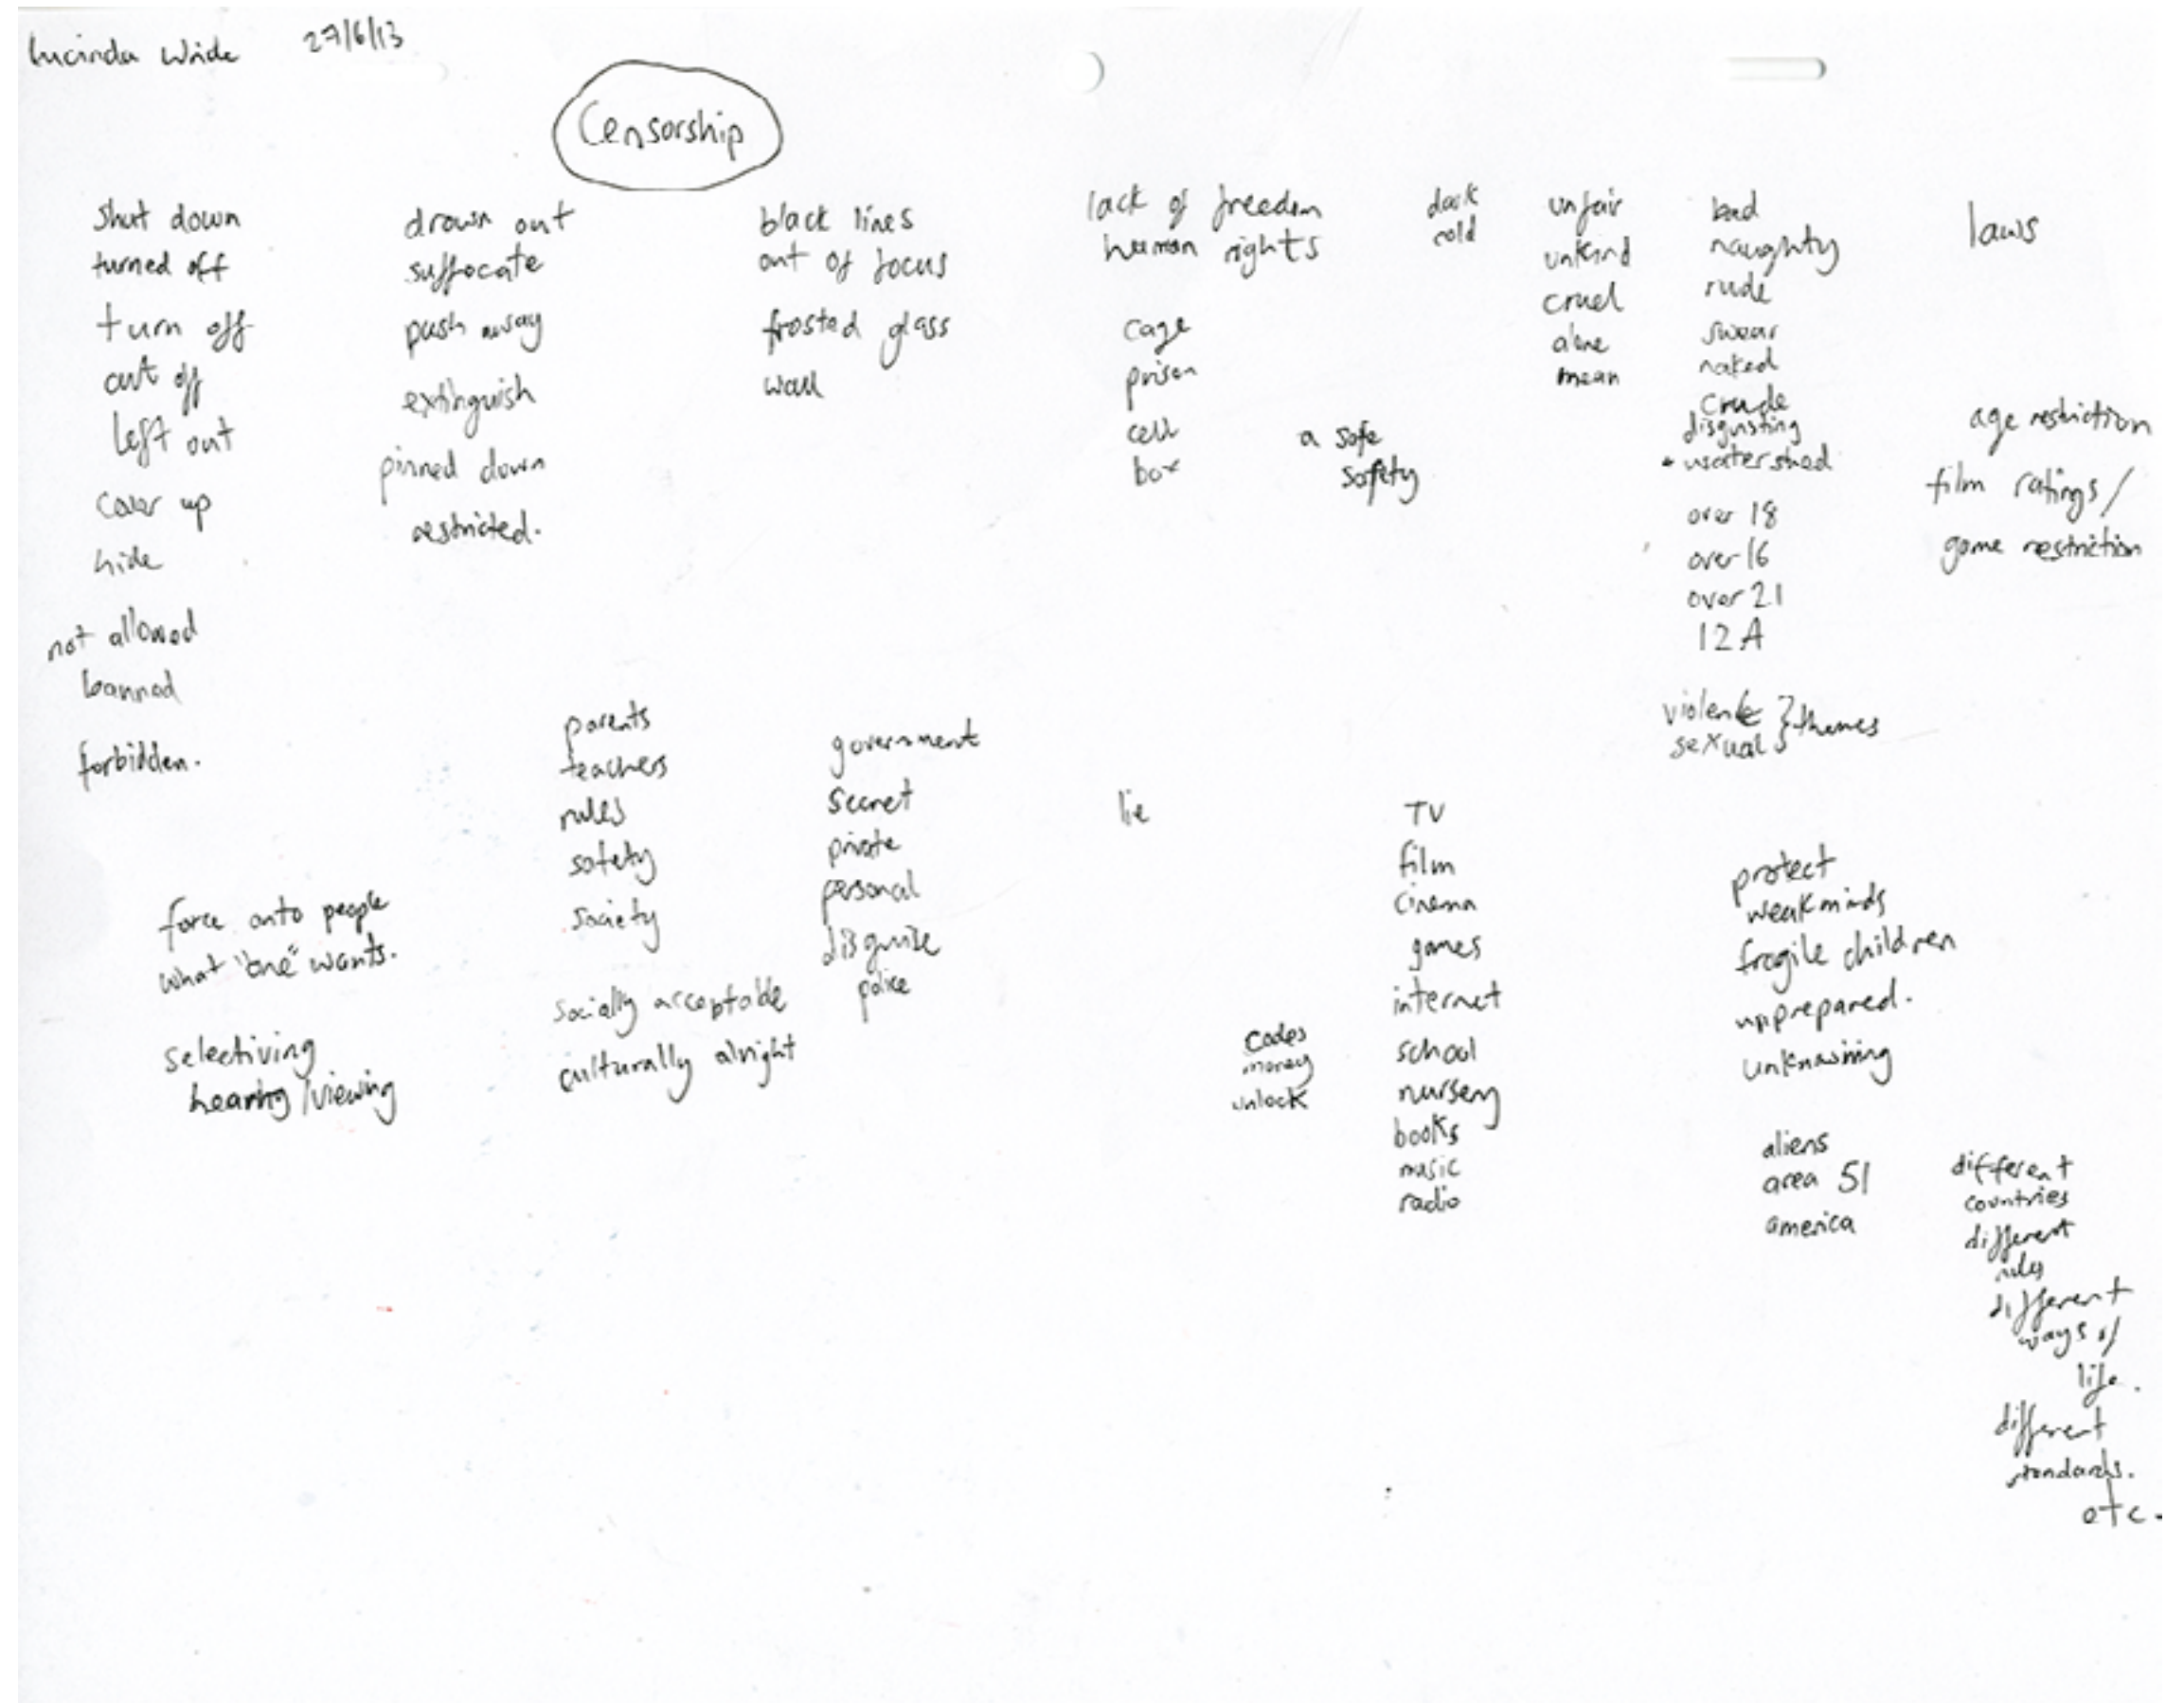 Lucinda Wade 27/6/13
Censorship
shut down
turned off
turn off
cut off
left out
cover up
hide
not allowed
banned
forbidden.
drown out
suffocate
push away
extinguish
pinned down
restricted.
black lines
out of focus
frosted glass
wall
lack of freedom
human rights
cage
prison
cell
box
a safe
safety
dark
cold
unfair
unkind
cruel
alone
mean
bad
naughty
rude
swear
naked
crude
disgusting
* watershed
over 18
over 16
over 21
12A
violent
sexual } themes
laws
age restriction
film ratings/
game restriction
force onto people
what "one" wants.
selectiving
hearing/viewing
parents
teachers
rules
safety
society
socially acceptable
culturally alright
government
secret
private
personal
disguise
police
lie
codes
money
unlock
TV
film
cinema
games
internet
school
nursery
books
music
radio
protect
weak minds
fragile children
unprepared.
unknowing
aliens
area 51
america
different
countries
different
rules
different
ways of
life.
different
standards.
etc.